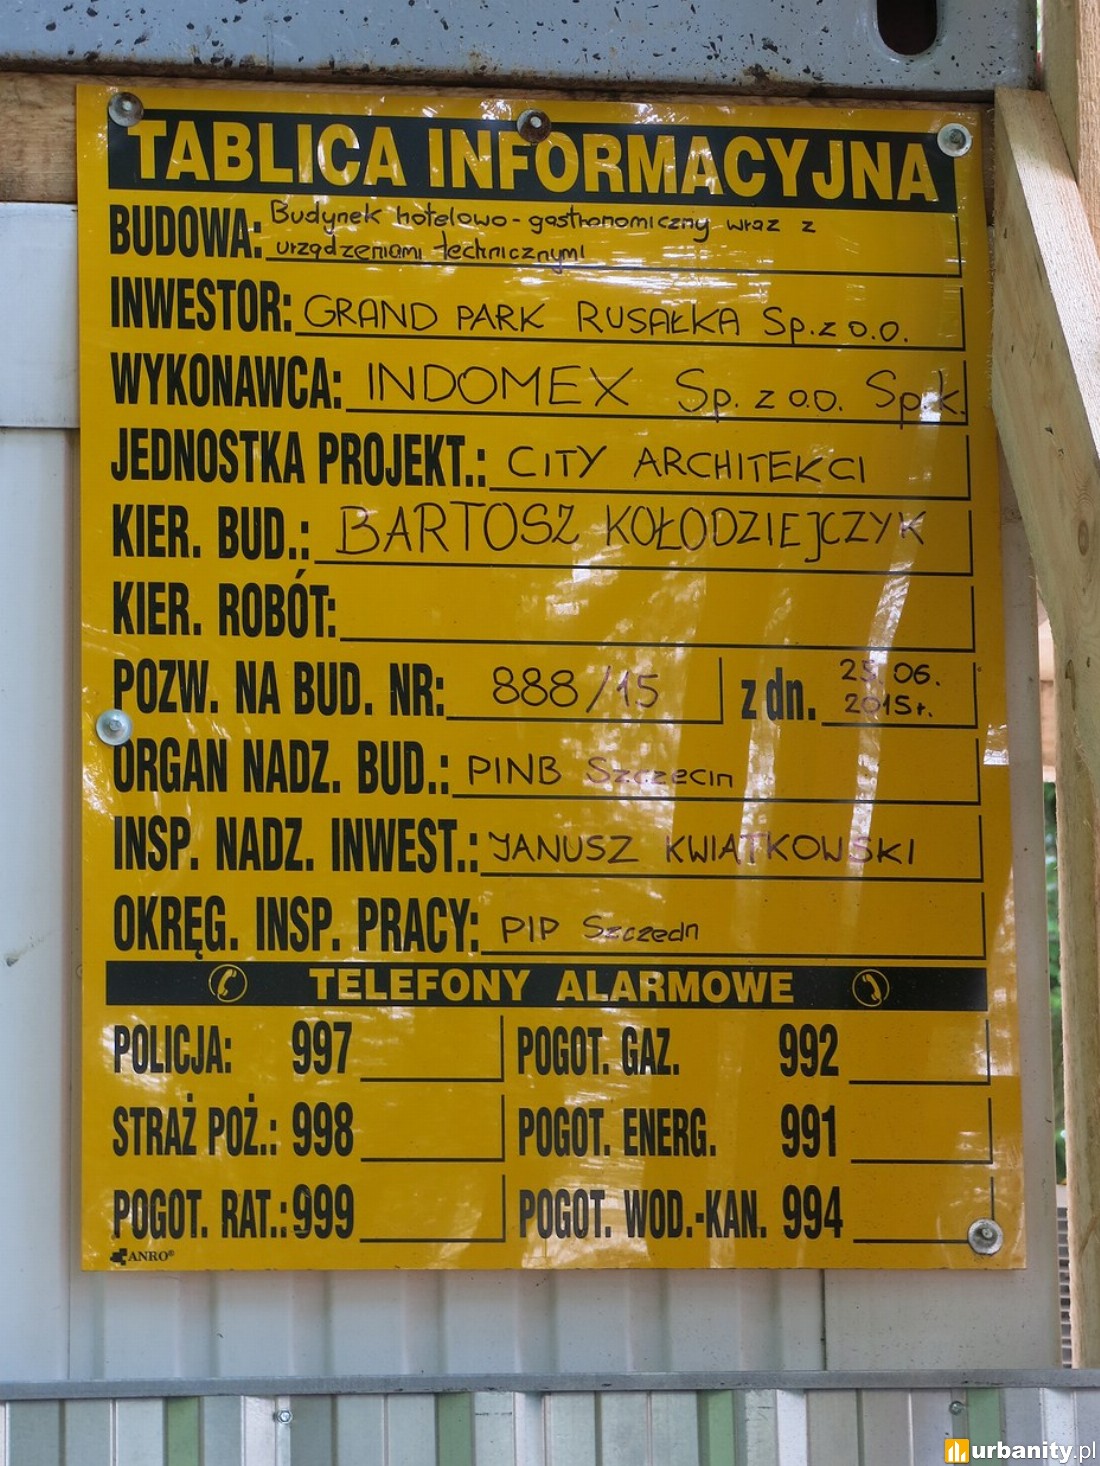 TABLICA INFORMACYJNA
BUDOWA: Budynek hotelowo-gastronomiczny wraz z
urządzeniami technicznymi
INWESTOR: GRAND PARK RUSAŁKA Sp. z o.o.
WYKONAWCA: INDOMEX Sp. z o.o. Sp.k.
JEDNOSTKA PROJEKT.: CITY ARCHITEKCI
KIER. BUD.: BARTOSZ KOŁODZIEJCZYK
KIER. ROBÓT:
POZW. NA BUD. NR: 888/15 z dn. 25.06.
2015r.
ORGAN NADZ. BUD.: PINB Szczecin
INSP. NADZ. INWEST.: JANUSZ KWIATKOWSKI
OKRĘG. INSP. PRACY: PIP Szczecin
TELEFONY ALARMOWE
POLICJA: 997 POGOT. GAZ. 992
STRAŻ POŻ.: 998 POGOT. ENERG. 991
POGOT. RAT.: 999 POGOT. WOD.-KAN. 994
ANRO®
urbanity.pl